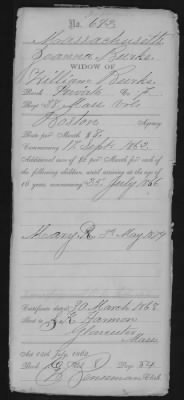 No. 673
Massachusetts
Joanna Burke
WIDOW OF
William Burke
Rank Private Co. F.
Reg't 38" Mass Vols
Boston Agency
Rate per Month $8.
Commencing 17 Sept. 1863.
Additional sum of $2 per month for each of
the following children, until arriving at the age of
16 years, commencing 25" July 1866
Mary R. 3" May 1879
Certificate dated 20 March 1868
Sent to
Gloucester
Mass.
Act 14th July, 1862.
Book Vol. Page 84
Clerk